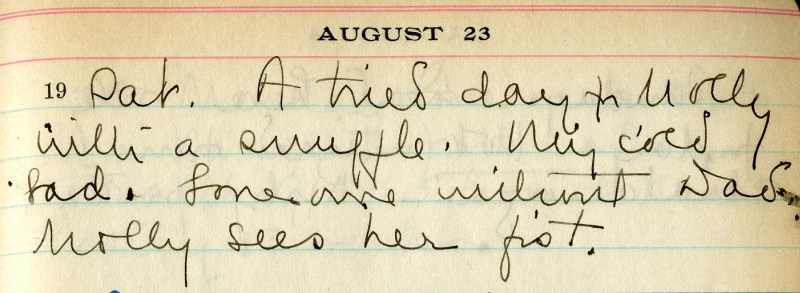 AUGUST 23
19 Sat. A tired day & Molly
with a snuffle. My cold
bad. Lonesome without Dad.
Molly sees her fist.